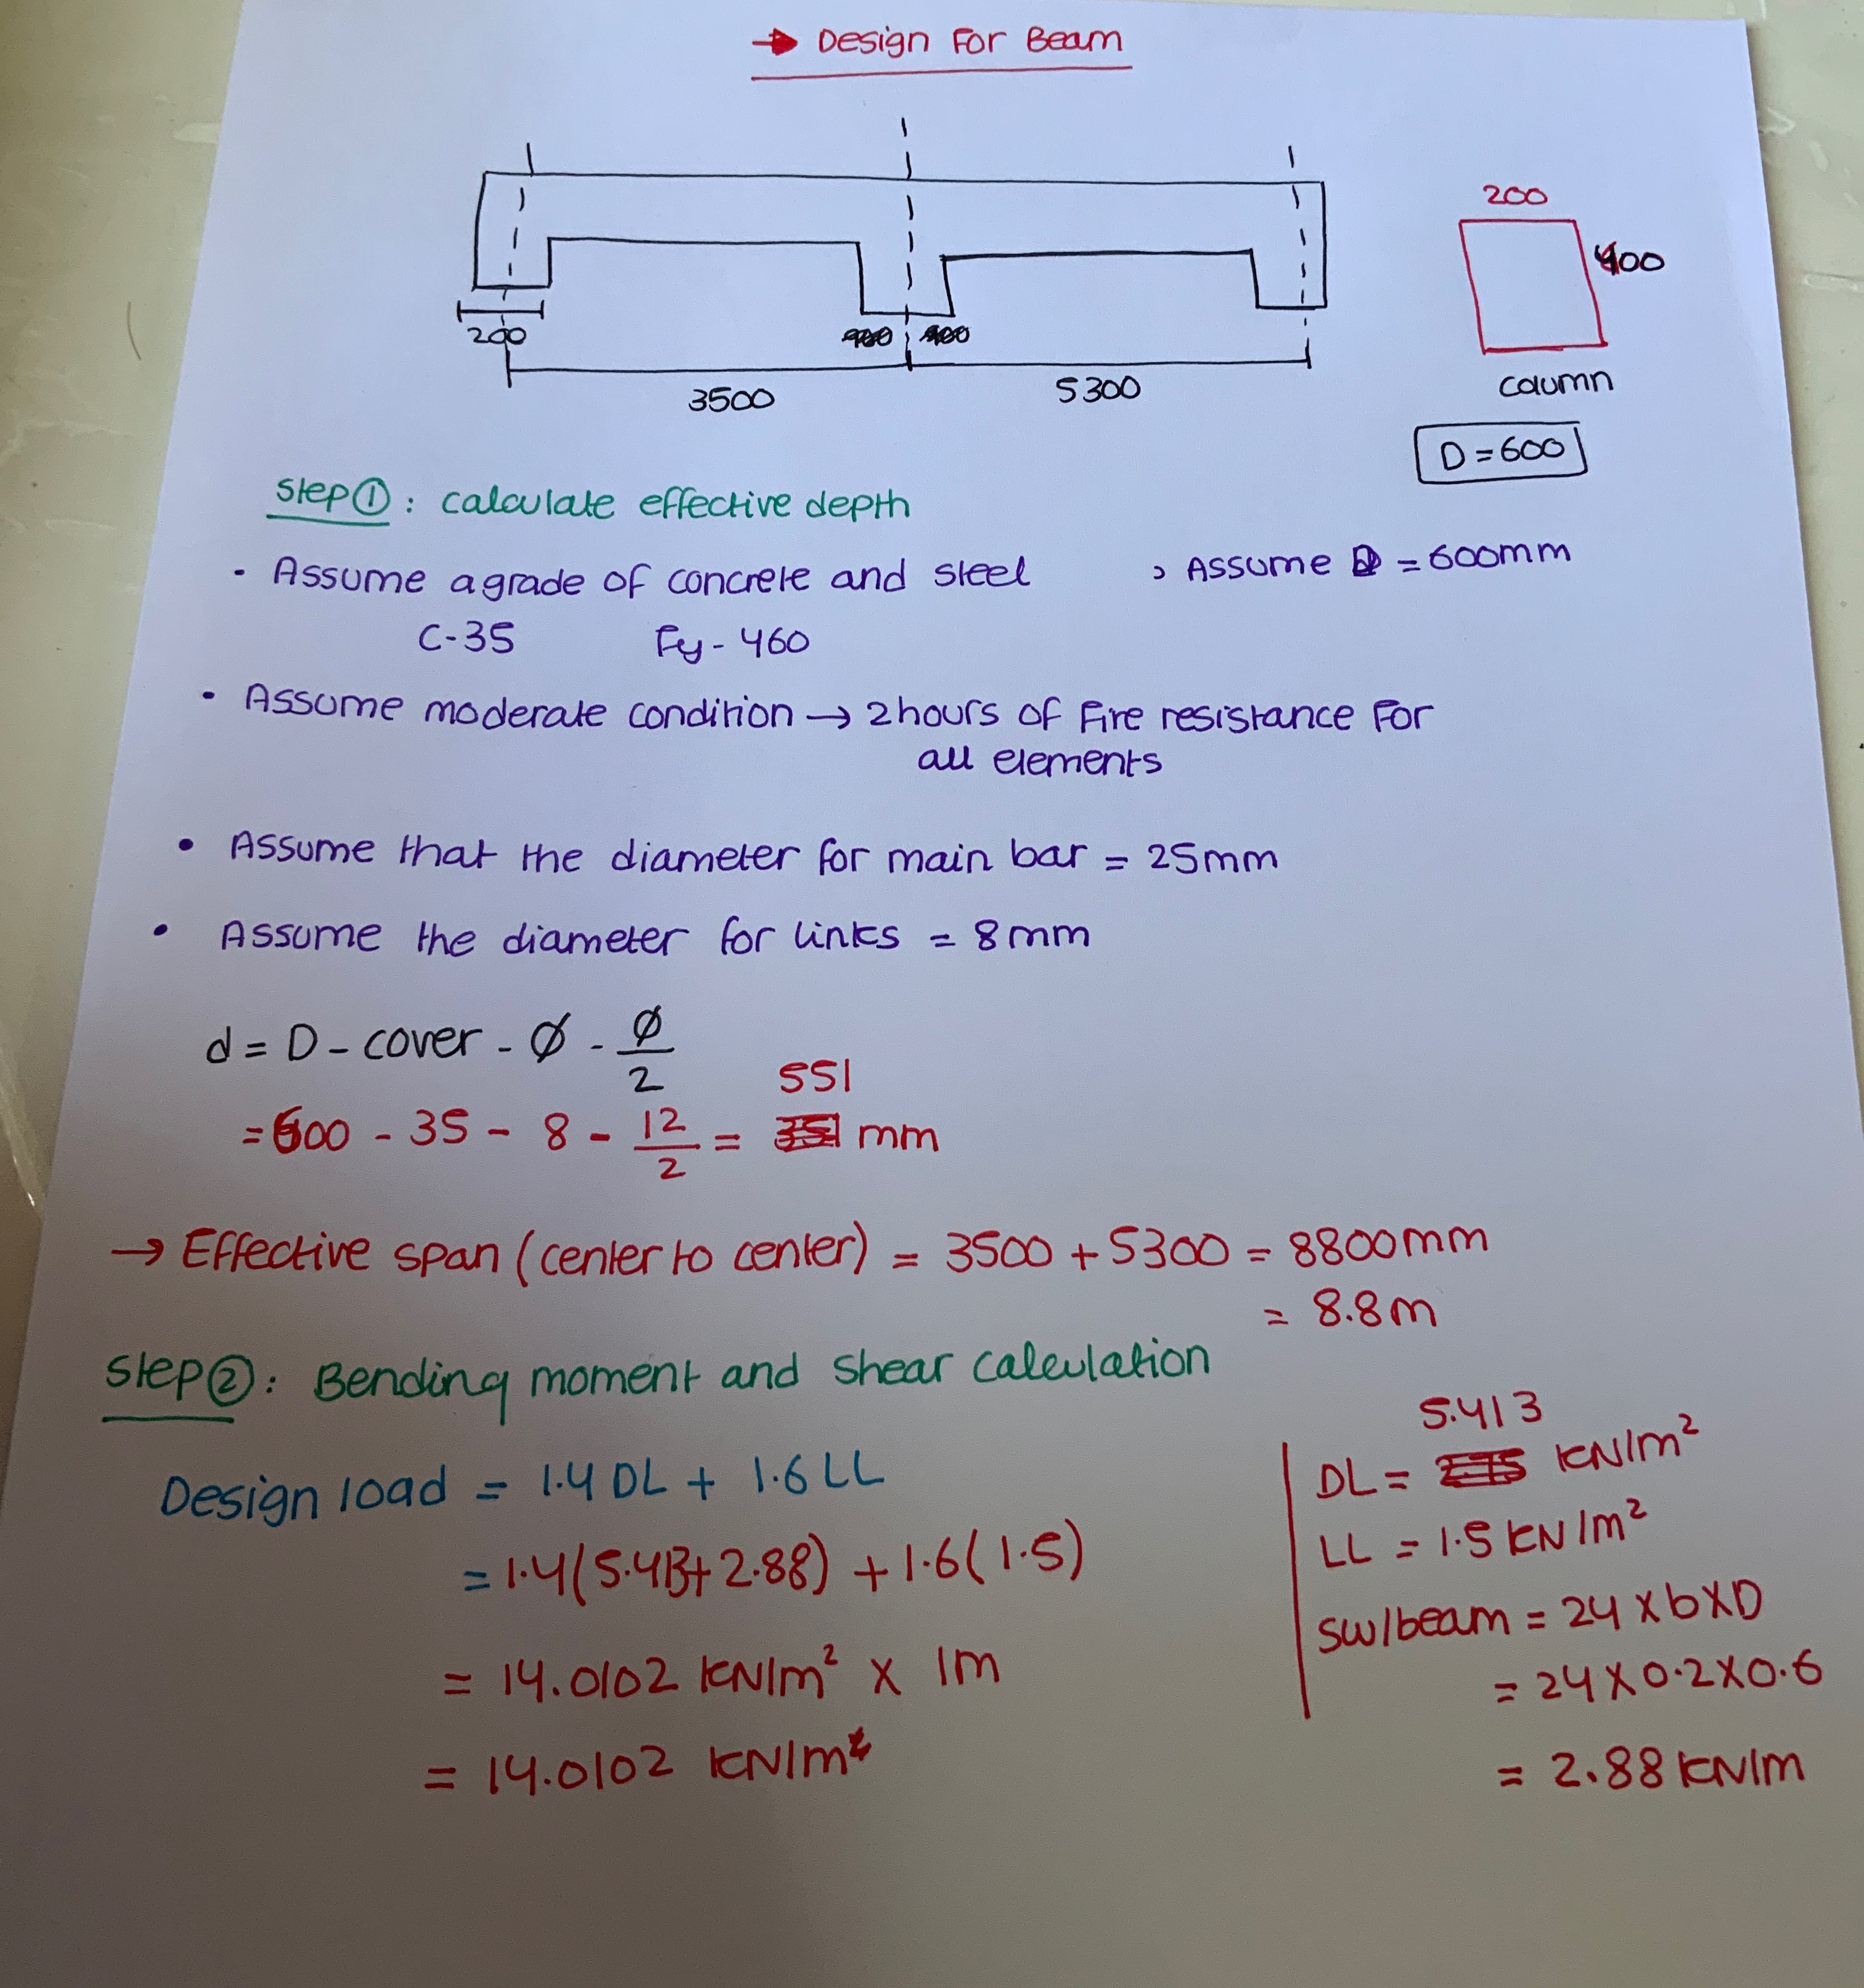 → Design For Beam
200
400
200
3500
5300
column
D = 600
Step ① : calculate effective depth
• Assume a grade of concrete and steel
, Assume D = 600mm
C-35 Fy - 460
• Assume moderate condition → 2 hours of Fire resistance For
all elements
• Assume that the diameter for main bar = 25mm
• Assume the diameter for links = 8mm
d = D - cover - Ø - Ø/2
= 600 - 35 - 8 - 12/2 = 551 mm
→ Effective span (center to center) = 3500 + 5300 = 8800mm
= 8.8m
Step ② : Bending moment and shear calculation
Design load = 1.4 DL + 1.6 LL
= 1.4(5.413+2.88) + 1.6(1.5)
= 14.0102 KN/m² × 1m
= 14.0102 KN/m
DL = 5.413 KN/m²
LL = 1.5 KN/m²
SW/beam = 24 × b × D
= 24 × 0.2 × 0.6
= 2.88 KN/m